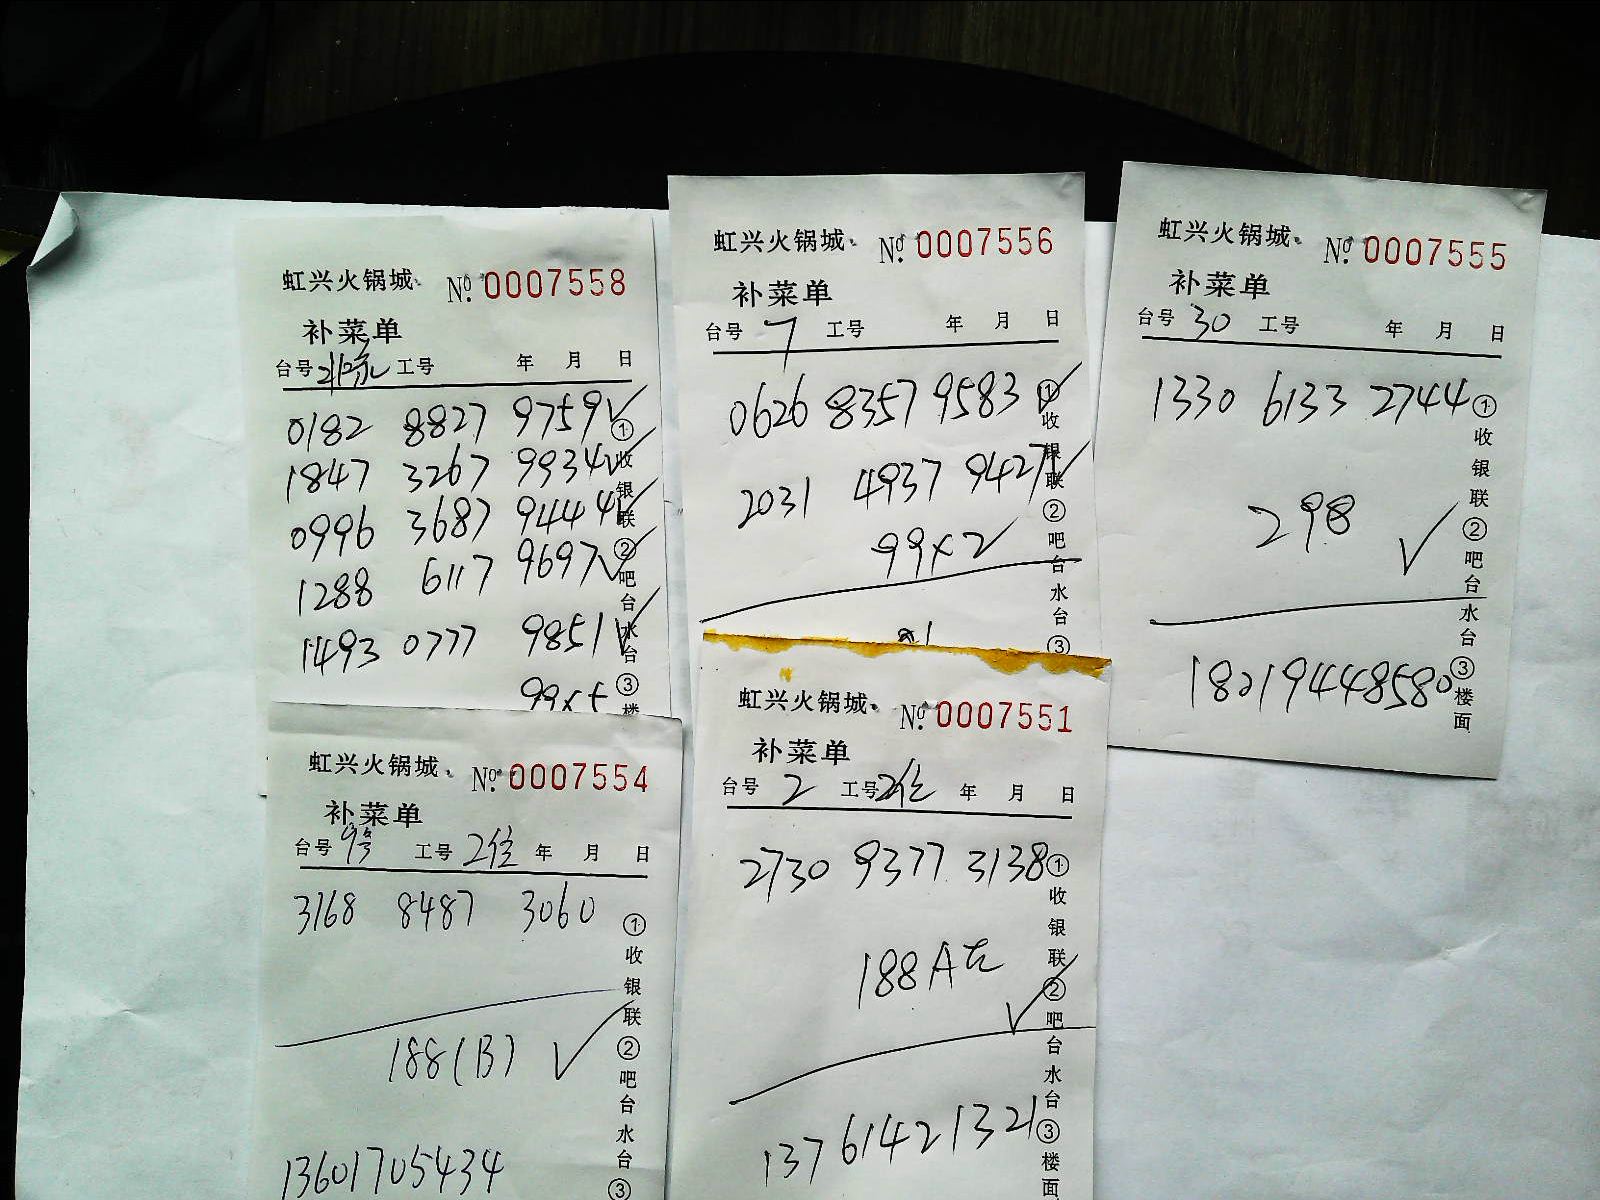 虹兴火锅城 № 0007558
补菜单
台号 工号 年 月 日
0182 8827 9759 ✓
1847 3267 9934 ✓
0996 3687 9444 ✓
1288 6117 9697 ✓
1493 0777 9851 ✓
99×5
①收银联②吧台水台③楼
虹兴火锅城 № 0007556
补菜单
台号 7 工号 年 月 日
0626 8357 9583 ✓
2031 4937 9427 ✓
99×2
①收银联②吧台水台③
虹兴火锅城 № 0007555
补菜单
台号 30 工号 年 月 日
1330 6133 2744
298 ✓
18019448580
①收银联②吧台水台③楼面
虹兴火锅城 № 0007554
补菜单
台号 9号 工号 2位 年 月 日
3168 8487 3060
188(B) ✓
13601705434
①收银联②吧台水台③
虹兴火锅城 № 0007551
补菜单
台号 2 工号 2位 年 月 日
2730 9377 3138
188A左 ✓
13761421321
①收银联②吧台水台③楼面